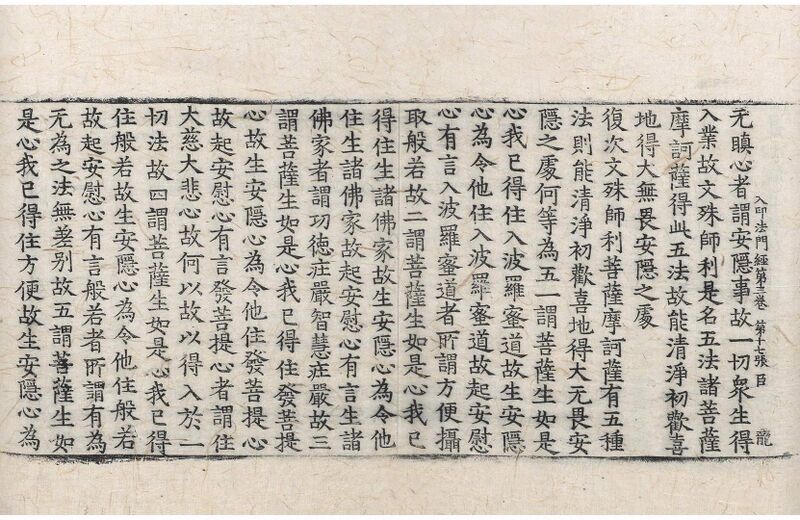 入印法門經第三卷 第十七張 臣 龍
无瞋心者謂安隱事故一切衆生得
入業故文殊師利是名五法諸菩薩
摩訶薩得此五法故能清淨初歡喜
地得大無畏安隱之處
復次文殊師利菩薩摩訶薩有五種
法則能清淨初歡喜地得大无畏安
隱之處何等為五一謂菩薩生如是
心我已得住入波羅蜜道故生安隱
心為令他住入波羅蜜道故起安慰
心有言入波羅蜜道者所謂方便攝
取般若故二謂菩薩生如是心我已
得住生諸佛家故生安隱心為令他
住生諸佛家故起安慰心有言生諸
佛家者謂功德莊嚴智慧莊嚴故三
謂菩薩生如是心我已得住發菩提
心故生安隱心為令他住發菩提心
故起安慰心有言發菩提心者謂住
大慈大悲心故何以故以得入於一
切法故四謂菩薩生如是心我已得
住般若故生安隱心為令他住般若
故起安慰心有言般若者所謂有為
无為之法無差别故五謂菩薩生如
是心我已得住方便故生安隱心為